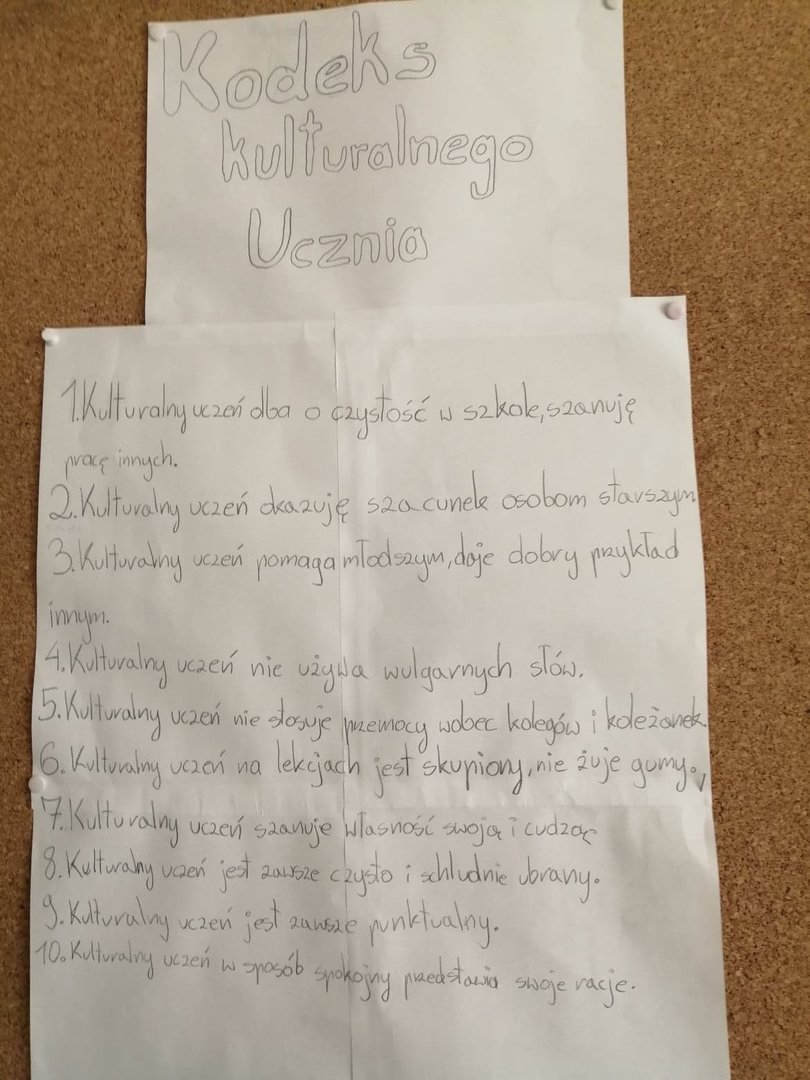 Kodeks
kulturalnego
Ucznia
1.Kulturalny uczeń dba o czystość w szkole, szanuję
pracę innych.
2.Kulturalny uczeń okazuję szacunek osobom starszym
3.Kulturalny uczeń pomaga młodszym, daje dobry przykład
innym.
4.Kulturalny uczeń nie używa wulgarnych słów.
5.Kulturalny uczeń nie stosuje przemocy wobec kolegów i koleżanek.
6.Kulturalny uczeń na lekcjach jest skupiony, nie żuje gumy.
7.Kulturalny uczeń szanuje własność swoją i cudzą
8.Kulturalny uczeń jest zawsze czysto i schludnie ubrany.
9.Kulturalny uczeń jest zawsze punktualny.
10.Kulturalny uczeń w sposób spokojny przedstawia swoje racje.